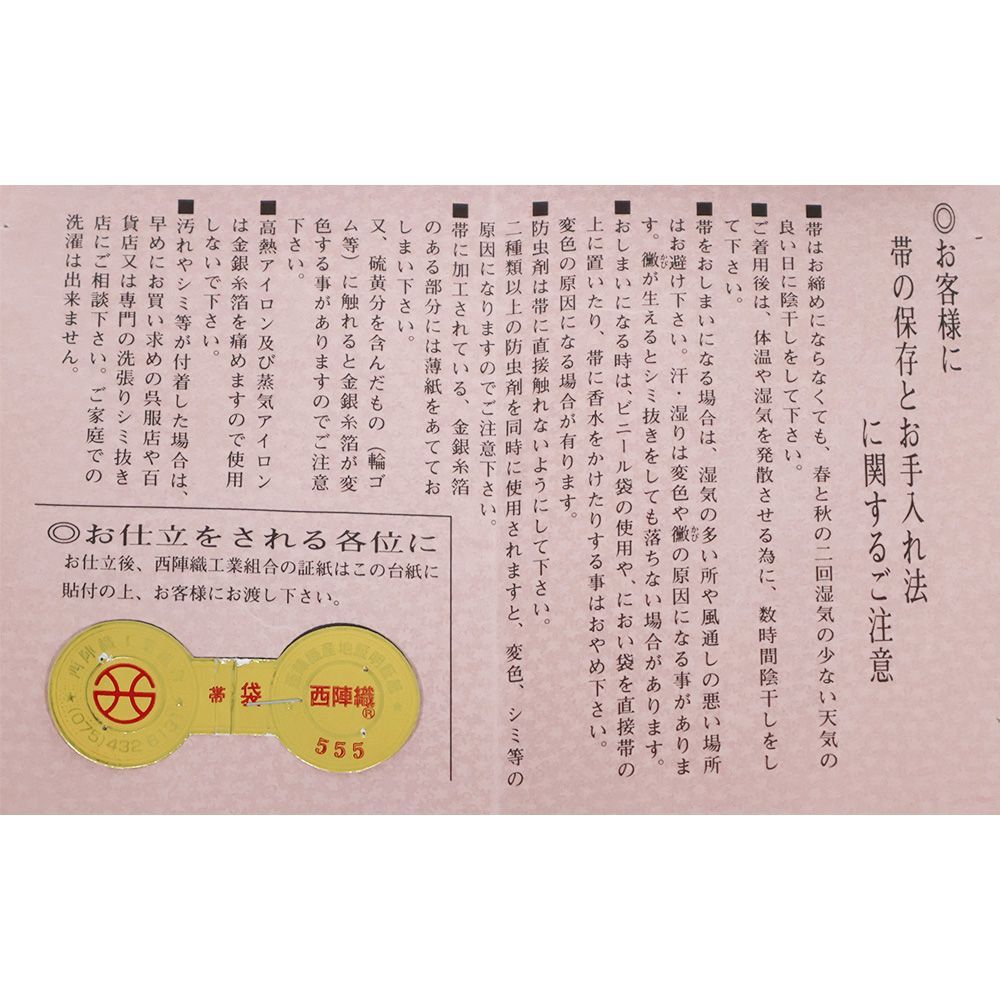 ◎お客様に
帯の保存とお手入れ法
に関するご注意
■帯はお締めにならなくても、春と秋の二回湿気の少ない天気の
良い日に陰干しをして下さい。
■ご着用後は、体温や湿気を発散させる為に、数時間陰干しをし
て下さい。
■帯をおしまいになる場合は、湿気の多い所や風通しの悪い場所
はお避け下さい。汗・湿りは変色や黴の原因になる事がありま
す。黴が生えるとシミ抜きをしても落ちない場合があります。
■おしまいになる時は、ビニール袋の使用や、におい袋を直接帯の
上に置いたり、帯に香水をかけたりする事はおやめ下さい。
変色の原因になる場合が有ります。
■防虫剤は帯に直接触れないようにして下さい。
二種類以上の防虫剤を同時に使用されますと、変色、シミ等の
原因になりますのでご注意下さい。
■帯に加工されている、金銀糸箔
のある部分には薄紙をあててお
しまい下さい。
又、硫黄分を含んだもの（輪ゴ
ム等）に触れると金銀糸箔が変
色する事がありますのでご注意
下さい。
■高熱アイロン及び蒸気アイロン
は金銀糸箔を痛めますので使用
しないで下さい。
■汚れやシミ等が付着した場合は、
早めにお買い求めの呉服店や百
貨店又は専門の洗張りシミ抜き
店にご相談下さい。ご家庭での
洗濯は出来ません。
◎お仕立をされる各位に
お仕立後、西陣織工業組合の証紙はこの台紙に
貼付の上、お客様にお渡し下さい。
西陣織工業組合
(075)432 6131
帯 袋
西陣織®
555